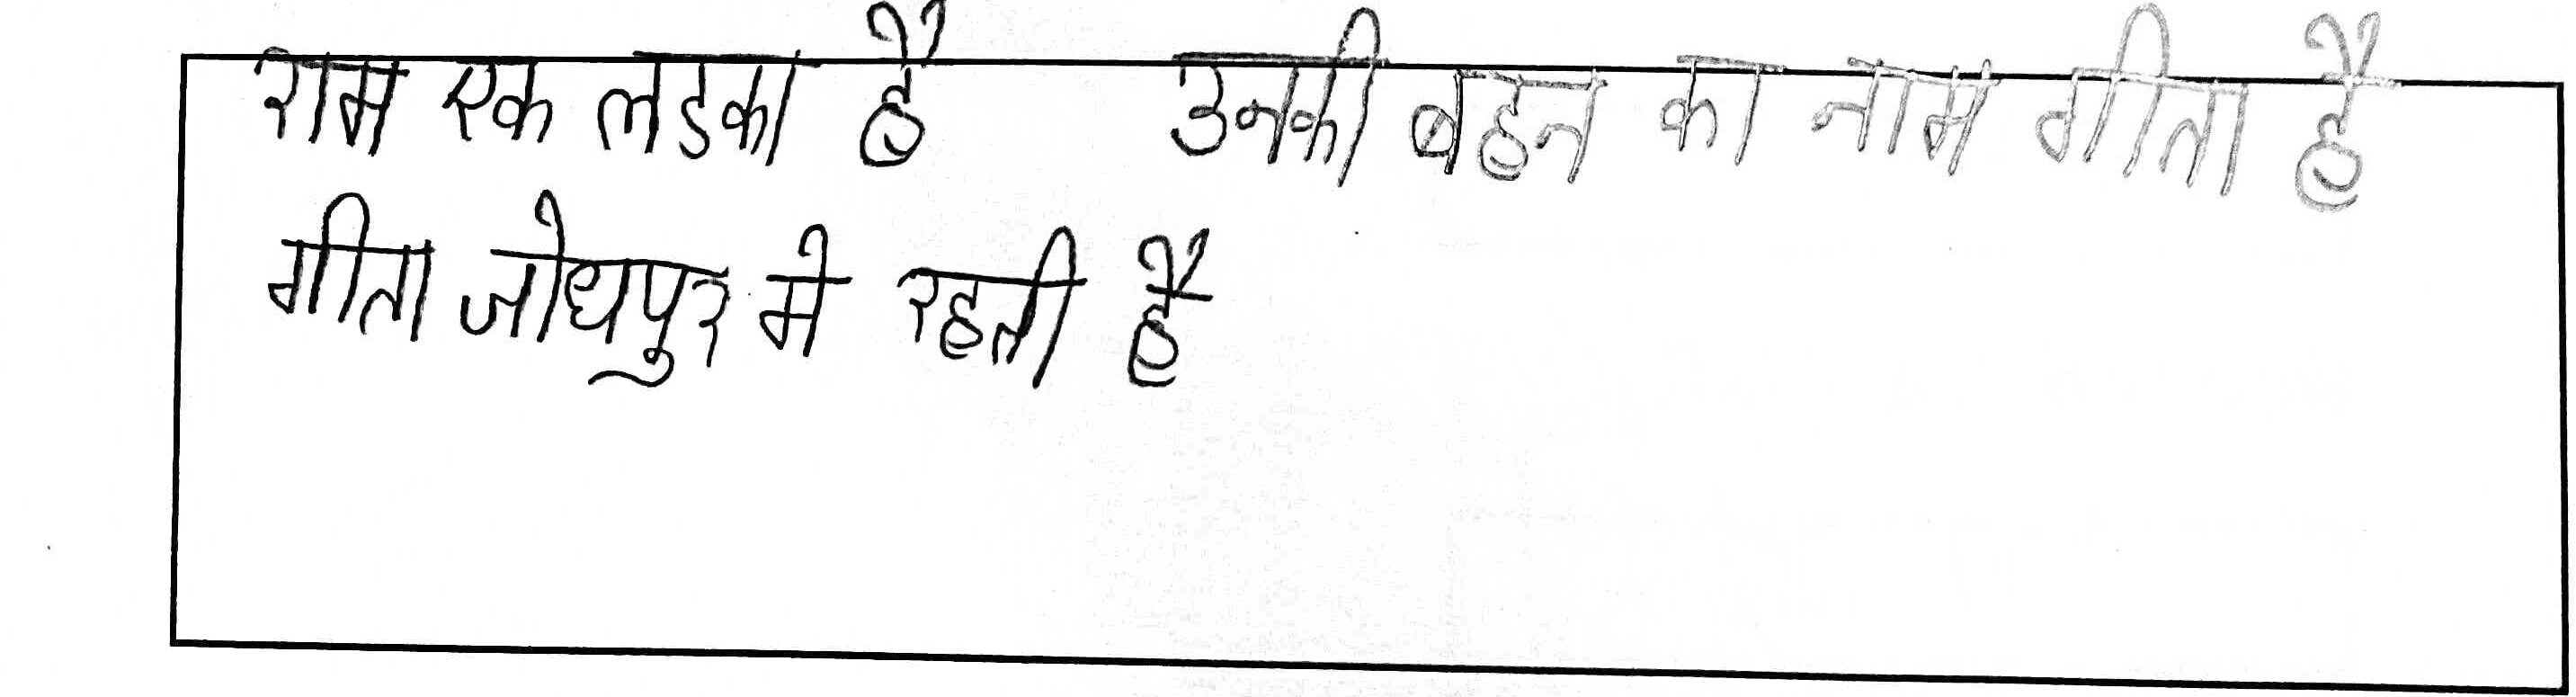 राम एक लडका है उनकी बहन का नाम गीता है
गीता जोधपुर मे रहती है